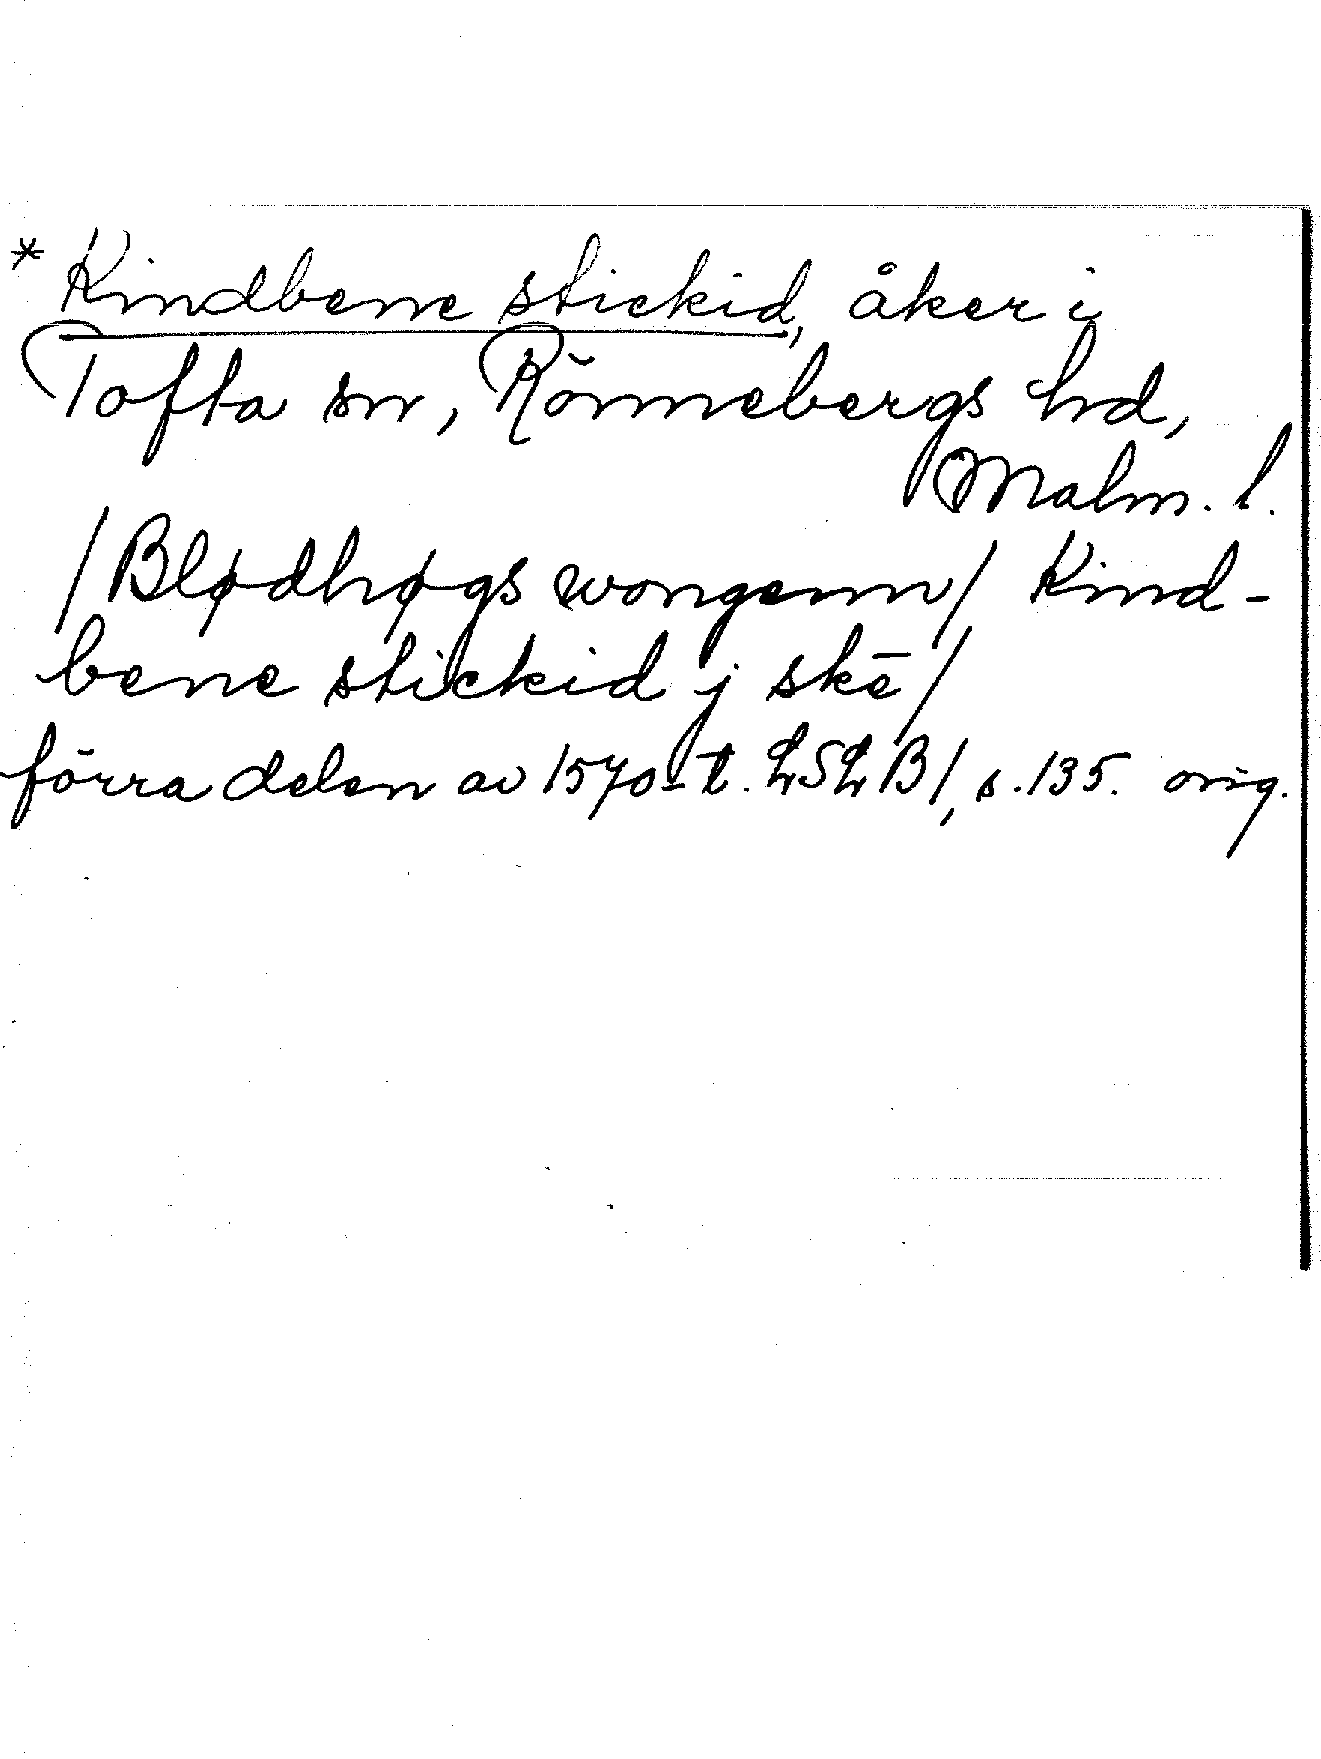 * Kindbene stickid, åker i
Tofta sn, Rönnebergs hd,
Malm. l.
/Blødhøgs wongenn/ Kind-
bene stickid j skē/
förra delen av 1570-t. LSLB/, s. 135. orig.